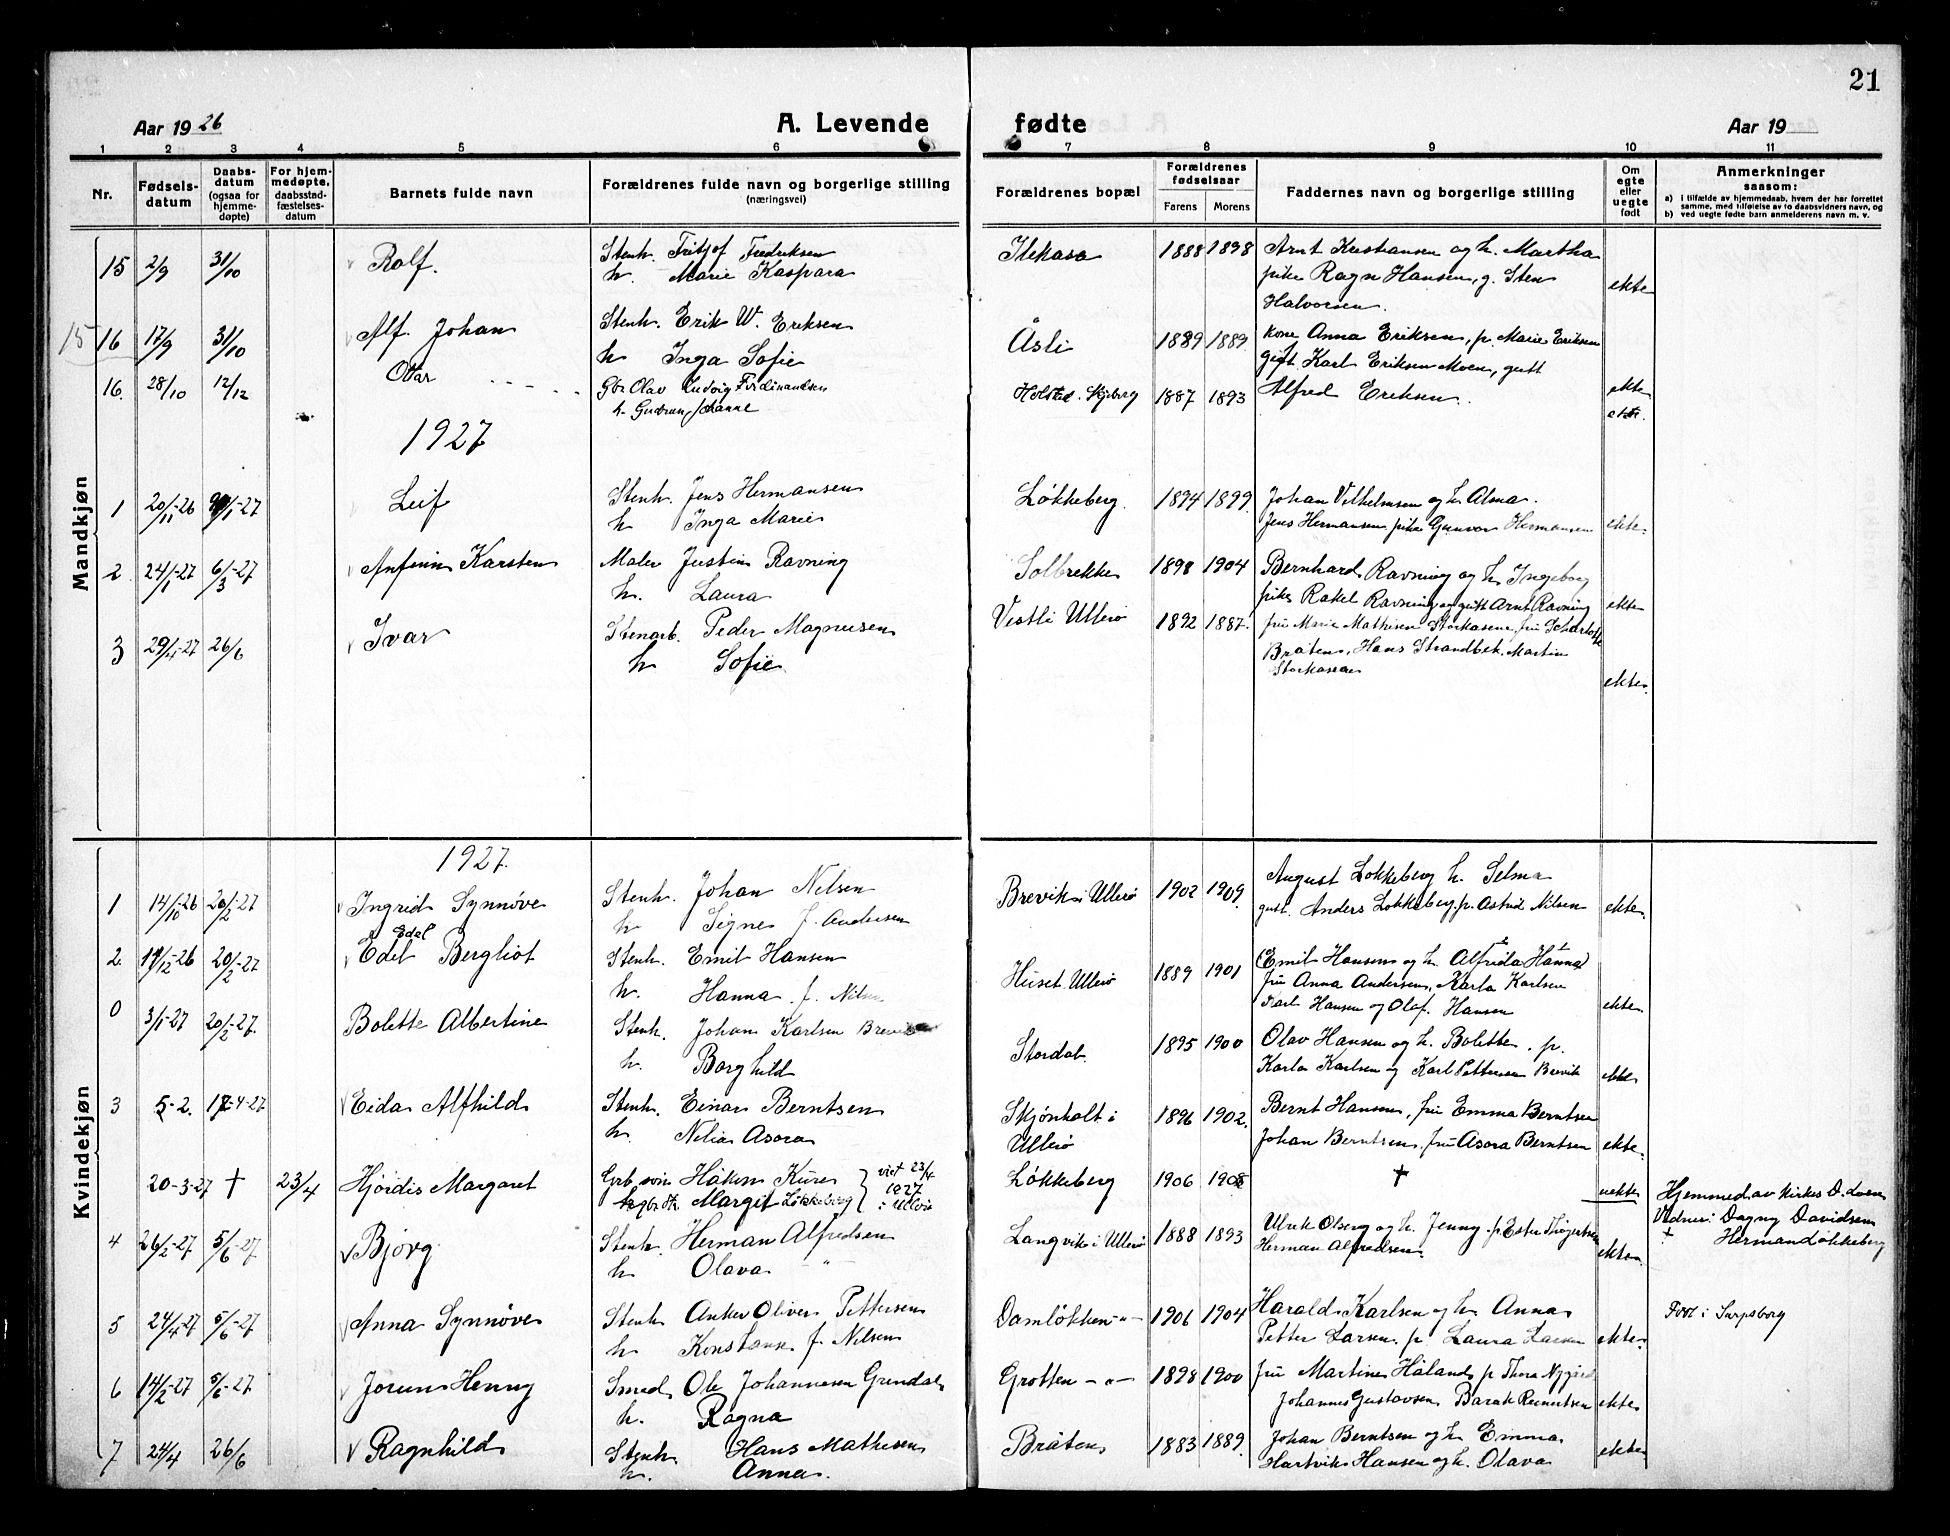 21
Aar 1926 A. Levende fødte Aar 19
1 2 3 4 5 6 7 8 9 10 11
Nr. Fødsels-datum Daabs-datum (ogsaa for hjemme-døpte) For hjem-medøpte, daabsstad-fæstelses-datum Barnets fulde navn Forældrenes fulde navn og borgerlige stilling (næringsvei) Forældrenes bopæl Forældrenes fødselsaar Farens Morens Faddernes navn og borgerlige stilling Om egte eller uegte født Anmerkninger saasom: a) i tilfælde av hjemmedaab, hvem der har forrettet samme, med tilføielse av to daabsvidners navn, og b) ved uegte fødte barn anmelderens navn m. v.
Mandkjøn
15 2/9 31/10 Rolf. Stenh. Fritjof Fredriksen Ilekasa 1888 1898 Arnt Kristiansen og h. Martha
h. Marie Kaspara pike Ragn Hansen, g. Sten
Halvorsen ekte
15 16 17/9 31/10 Alf Johan Stenh. Erik W. Eriksen Åsli 1889 1889 Kone Anna Eriksen, p. Marie Eriksen
h Inga Sofie Gift. Karl Eriksen Moen, gutt
Alfred Eriksen. ekte
16. 28/10 12/12 Ovar Gbr Olav Ludvig Ferdinandsen Holsted. Skjeberg 1887 1893 ekte.
h. Gudrun Johanne
1927
1 20/11-26 /1-27 Leif Stenh. Jens Hermansen Løkkeberg 1894 1899 Johan Vilhelmsen og h. Alma.
h Inga Marie Jens Hermansen pike Gunvor Hermansen ekte
2 24/1-27 6/3-27 Anfinn Karsten Maler Justin Ravning Solbrekke 1898 1904 Bernhard Ravning og h. Ingeborg
h. Laura pike Rakel Ravning og gutt Arnt Ravning ekte
3 29/4-27 26/6 Ivar Stenarb. Peder Magnusen Vestli Ullerø 1892 1887. fru Marie Mathisen Storkasene, fru
h Sofie Bråten, Hans Strandbek, Martin
ekte.
Kvindekjøn
1927.
1 14/10-26 20/2-27 Ingrid Synnøve Stenh. Johan Nilsen Brevik i Ullerø 1902 1909 August Løkkeberg h. Selma
h Signe f. Andersen gutt. Anders Løkkeberg, p. Astrid Nilsen ekte
Edel
2. /12-26 20/2-27 Edel Bergliot Stenh. Emil Hansen Huset Ullerø 1889 1901 (Emil Hansen og h. Alfrida Hanna)
h. Hanna f. Nilsen fru Anna Andersen, Karla Karlsen
Karl Hansen og Olaf Hansen ekte
0 3/1-27 20/2-27. Bolette Albertine Stenh. Johan Karlsen Stordal. 1895 1900 Olav Hansen og h. Bolette. p.
h. Borghild Karla Karlsen og Karl Pettersen Brevik ekte
3 5-2. 17-4-27 Eida Alfhild Stenh. Einar Berntsen Skjønhalt i Ullerø 1896 1902. Bernt Hansen, fru Emma Berntsen
h. Nelia Asora Johan Berntsen, fru Asora Berntsen ekte.
20-3-27 † 23/4 Hjørdis Margaret Grb. søn Håkon Kure Løkkeberg 1906 1908 † uekte
gbr. dt. Margit Løkkeberg viet 23/4 1927 i Ullerø
Hjemmed. av kirkes D.
Vidner: Dagny Davidsen
† Herman Løkkeberg
4 26/2-27 5/6-27 Bjørg Stenh. Herman Alfredsen Langvik i Ullerø 1888 1893 Ulrik Olsberg og h. Jenny. p. Ester
h Olava - " - Herman Alfredsen. ekte
5 24/4-27 5/6-27 Anna Synnøve Stenh Anker Oliver Pettersen Damløkken - " - 1906 1904 Harald Karlsen og h. Anna
h. Konstanse f. Nilsen Petter Larsen. p Laura Larsen ekte. Født i Sarpsborg
6 14/2-27 5/6-27 Jorunn Henny Smed Ole Johannesen Grendal Grotten - " - 1898 1900 fru Martine Håland p Thora Nygård
h. Ragna Johannes Gustavsen Barak Reinertsen ekte
7 24/4 26/6 Ragnhild Stenh Hans Mathisen Bråten 1883 1889. Johan Berntsen og h Emma
h. Anna. Hartvik Hansen og h. Olava ekte